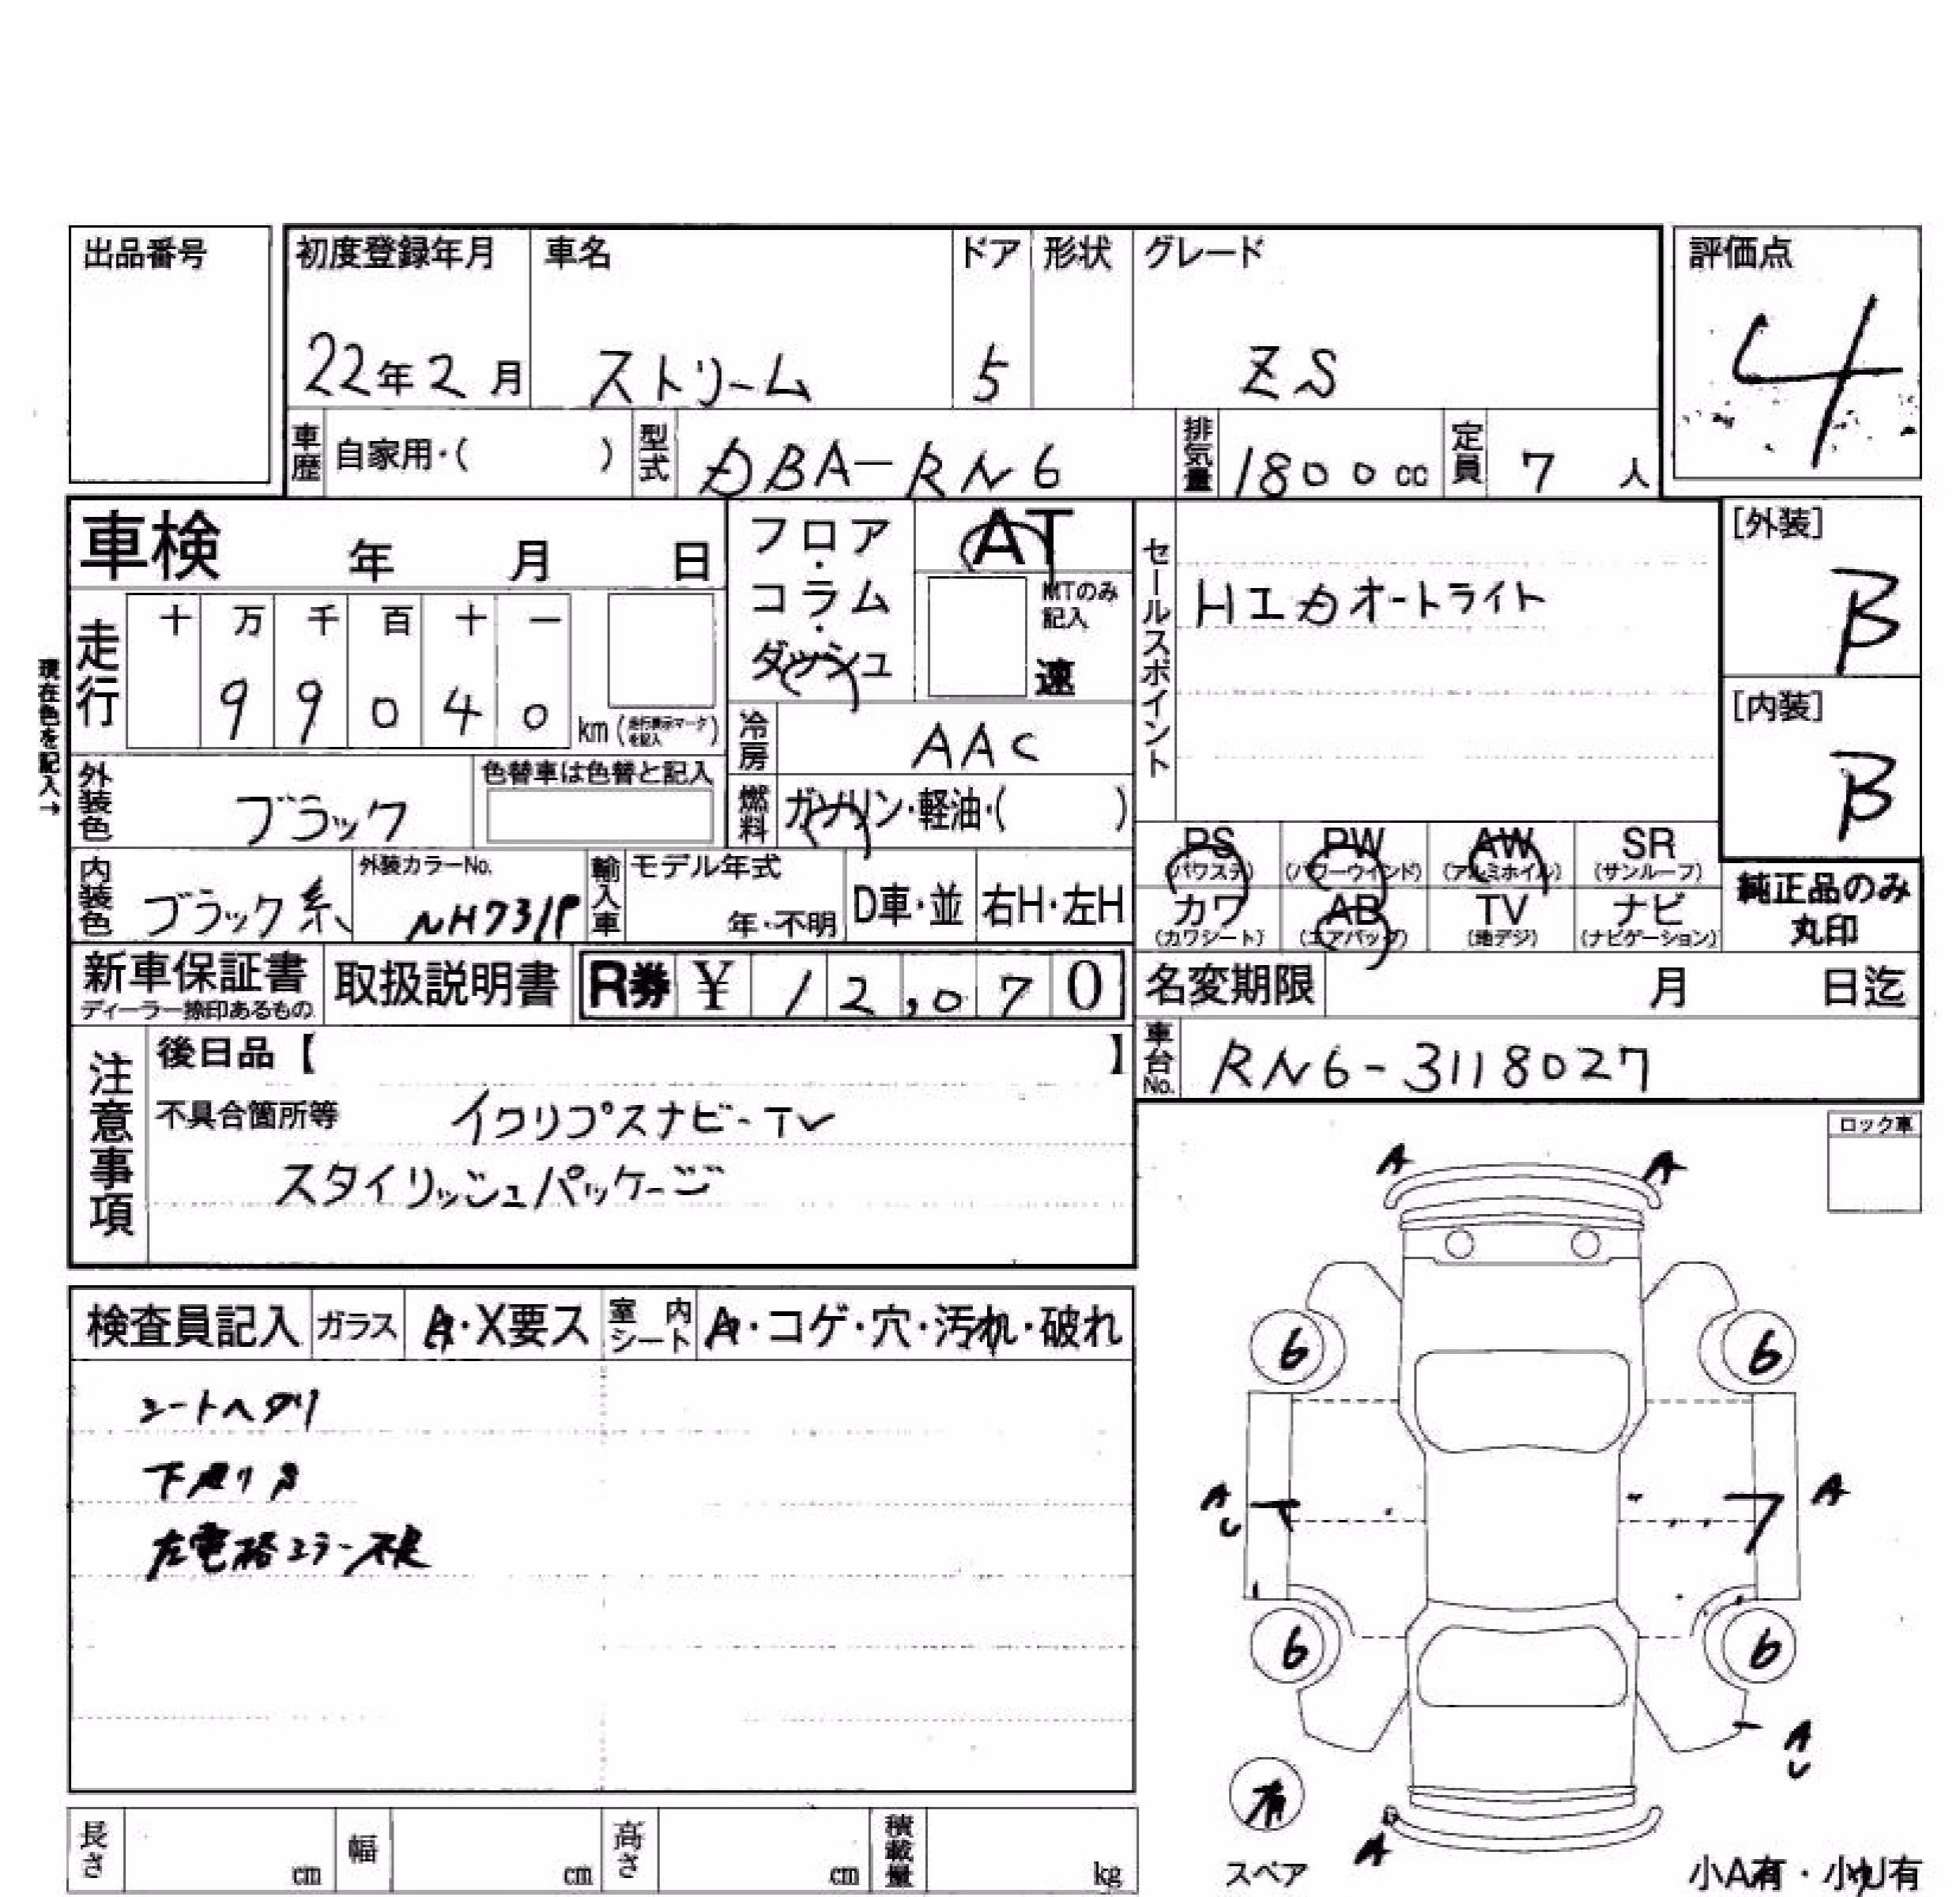 出品番号
初度登録年月 車名 ドア 形状 グレード
評価点
22年2月 ストリーム 5 ZS
4
車歴 自家用・( ) 型式 DBA-RN6 排気量 1800cc 定員 7人
車検 年 月 日
フロア・コラム・ダッシュ
AT
MTのみ記入
速
セールスポイント
HID オートライト
[外装]
B
[内装]
B
現在色を記入→
走行 十 万 千 百 十 一
9 9 0 4 0 km (走行表示マークを記入)
冷房 AAC
外装色 ブラック
色替車は色替と記入
燃料 ガソリン・軽油・( )
PS (パワステ) PW (パワーウィンド) AW (アルミホイル) SR (サンルーフ)
カワ (カワシート) AB (エアバッグ) TV (地デジ) ナビ (ナビゲーション)
純正品のみ丸印
内装色 ブラック系
外装カラーNo.
NH731P
輸入車 モデル年式
年・不明
D車・並 右H・左H
新車保証書
ディーラー捺印あるもの
取扱説明書 R券 ¥ 12,070
名変期限 月 日迄
車台No. RN6-3118027
注意事項
後日品【 】
不具合箇所等 イクリプスナビ-TV
スタイリッシュパッケージ
ロック車
検査員記入 ガラス A・X要ス 室内シート A・コゲ・穴・汚れ・破れ
シートヘタリ
左電格ミラー不良
A A
6 6
A U A
6 6
A U
有
スペア
A
小A有・小U有
長さ cm 幅 cm 高さ cm 積載量 kg